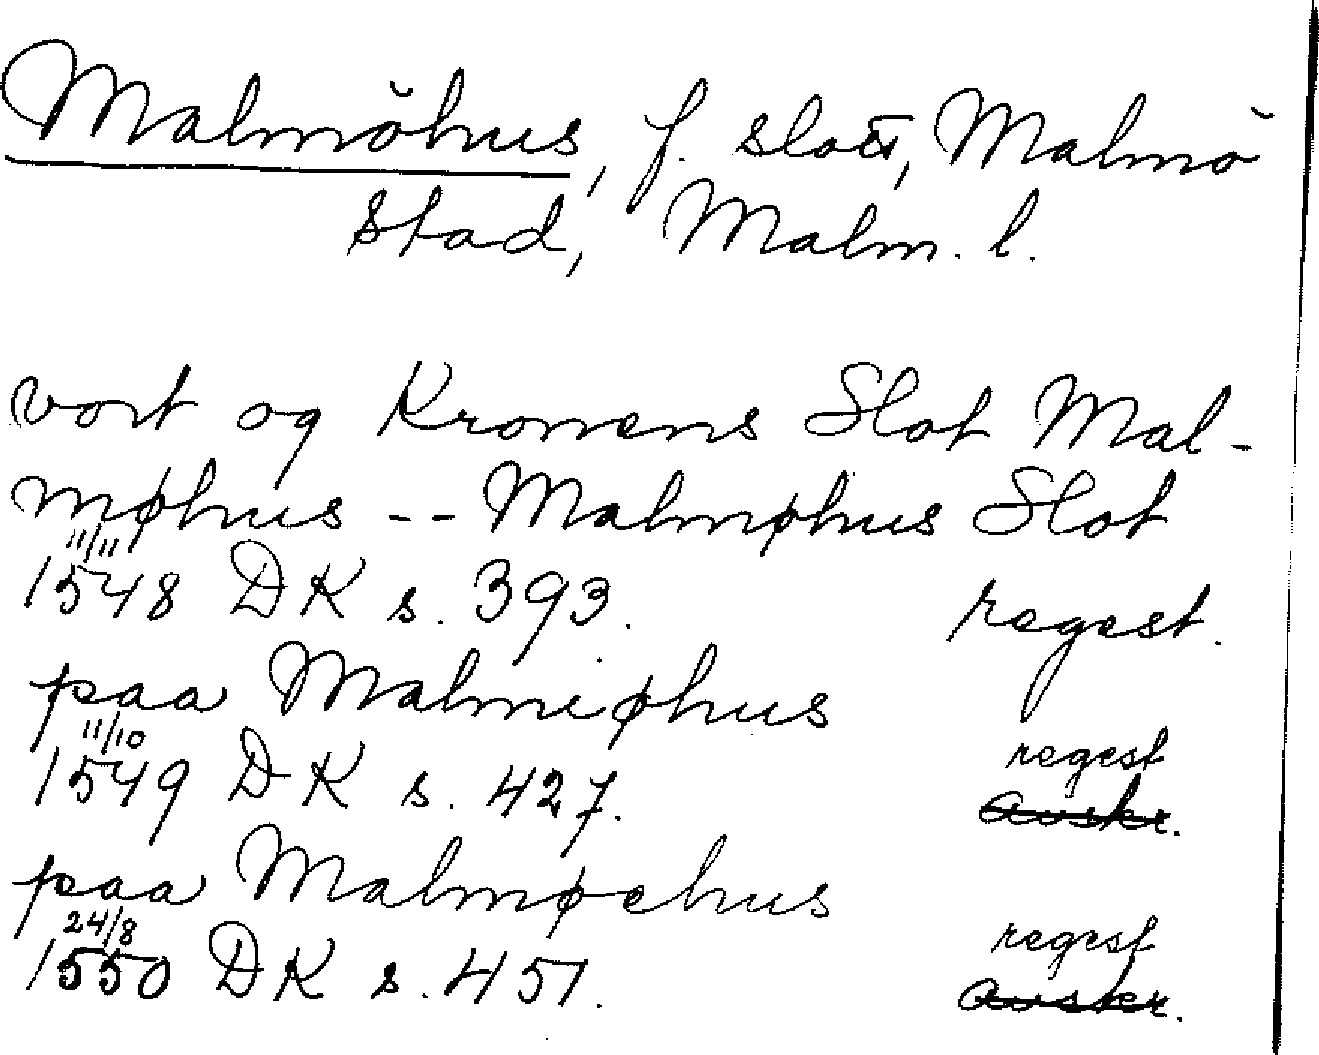 Malmöhus, f. slott, Malmö
stad, Malm. l.
vort og Kronens Slot Mal-
møhus -- Malmøhus Slot
11/11
1548 DK s. 393. regest.
paa Malmeøhus
11/10
1549 DK s. 427. regest
avskr.
paa Malmøehus
24/8
1550 DK s. 451. regest
avskr.